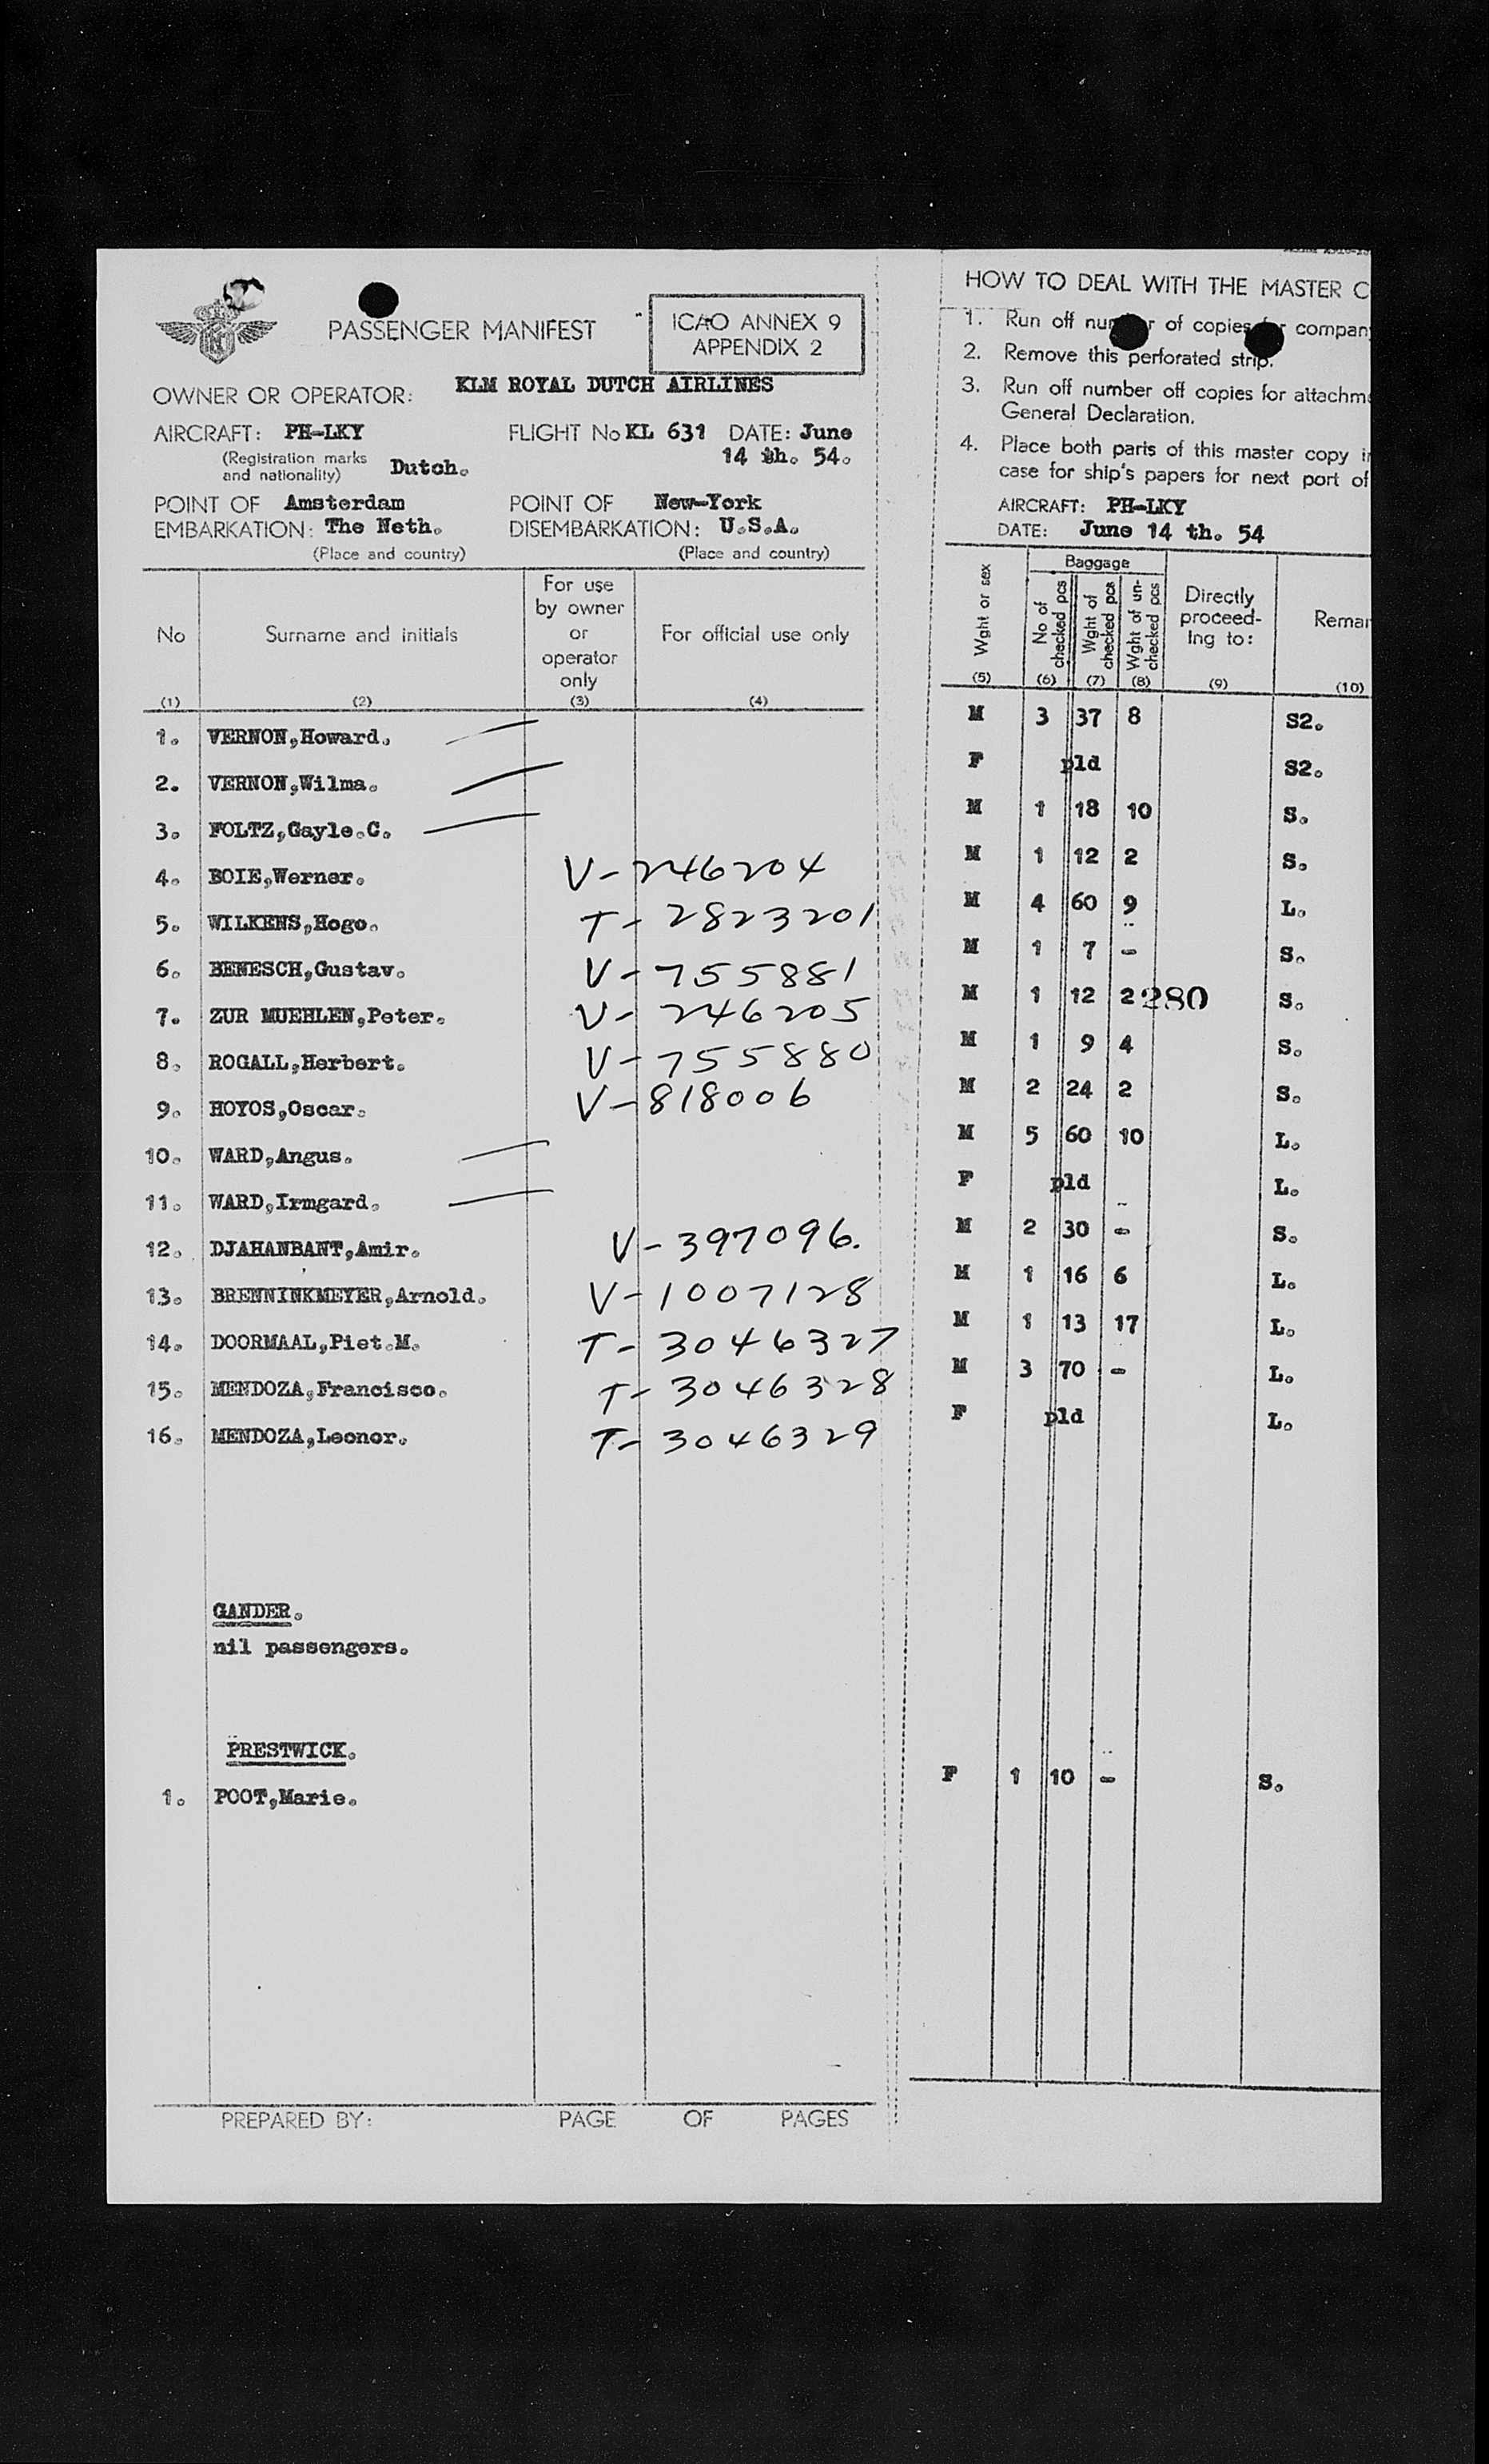 PASSENGER MANIFEST
ICAO ANNEX 9
APPENDIX 2
OWNER OR OPERATOR: KLM ROYAL DUTCH AIRLINES
AIRCRAFT: PH-LKY FLIGHT No KL 631 DATE: June
(Registration marks and nationality) Dutch. 14 th. 54.
POINT OF EMBARKATION: Amsterdam The Neth. POINT OF DISEMBARKATION: New-York U.S.A.
(Place and country) (Place and country)
No Surname and initials For use by owner or operator only For official use only
(1) (2) (3) (4)
1. VERNON,Howard.
2. VERNON,Wilma.
3. FOLTZ,Gayle.C.
4. BOIE,Werner. V-246204
5. WILKENS,Hogo. T-2823201
6. BENESCH,Gustav. V-755881
7. ZUR MUEHLEN,Peter. V-246205
8. ROGALL,Herbert. V-755880
9. HOYOS,Oscar. V-818006
10. WARD,Angus.
11. WARD,Irmgard.
12. DJAHANBANT,Amir. V-397096.
13. BRENNINKMEYER,Arnold. V-1007128
14. DOORMAAL,Piet.M. T-3046327
15. MENDOZA,Francisco. T-3046328
16. MENDOZA,Leonor. T-3046329
GANDER.
nil passengers.
PRESTWICK.
1. POOT,Marie.
PREPARED BY: PAGE OF PAGES
HOW TO DEAL WITH THE MASTER C
1. Run off of copies compan
2. Remove this perforated strip.
3. Run off number off copies for attachme
General Declaration.
4. Place both parts of this master copy i
case for ship's papers for next port of
AIRCRAFT: PH-LKY
DATE: June 14 th. 54
Wght or sex Baggage No of checked pcs Wght of checked pcs Wght of un-checked pcs Directly proceed-ing to: Remar
(5) (6) (7) (8) (9) (10)
M 3 37 8 S2.
F pld S2.
M 1 18 10 S.
M 1 12 2 S.
M 4 60 9 L.
M 1 7 - S.
M 1 12 2 280 S.
M 1 9 4 S.
M 2 24 2 S.
M 5 60 10 L.
F pld L.
M 2 30 - S.
M 1 16 6 L.
M 1 13 17 L.
M 3 70 - L.
F pld L.
F 1 10 - S.